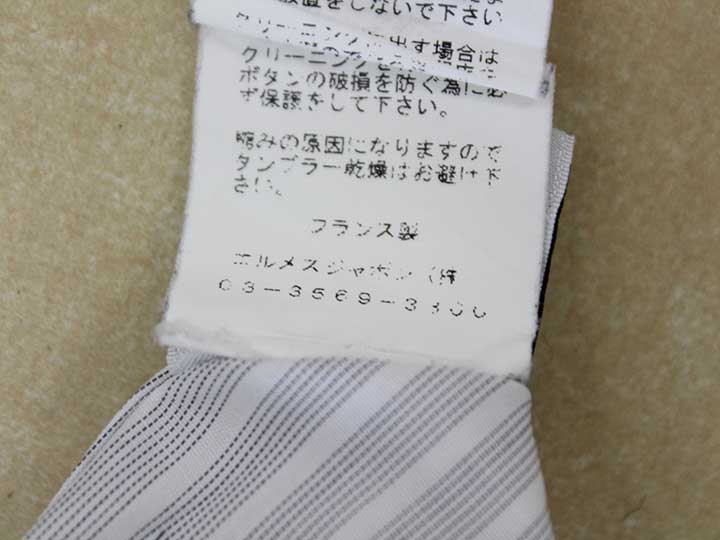 放置をしないで下さい
クリーニングに出す場合は
ボタンの破損を防ぐ為に必
ず保護をして下さい。
縮みの原因になりますので
タンブラー乾燥はお避け下
さい。
フランス製
エルメスジャポン（株
０３－３５６９－３３００